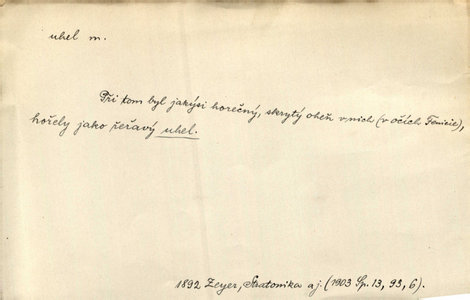 uhel m.
Při tom byl jakýsi horečný, skrytý oheň v nich (v očích Fenicie),
hořely jako řeřavý uhel.
1892 Zeyer, Stratonika aj. (1903 Sp. 13, 93, 6).